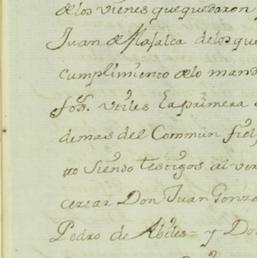 de los vienes que quedaron
Juan de de los que
cumplimiento de lo man
utiles La primera
demas del Comun fiel
Siendo testigos al ver
cercar Don Juan Gonza
Pedro de Abiles = y Do